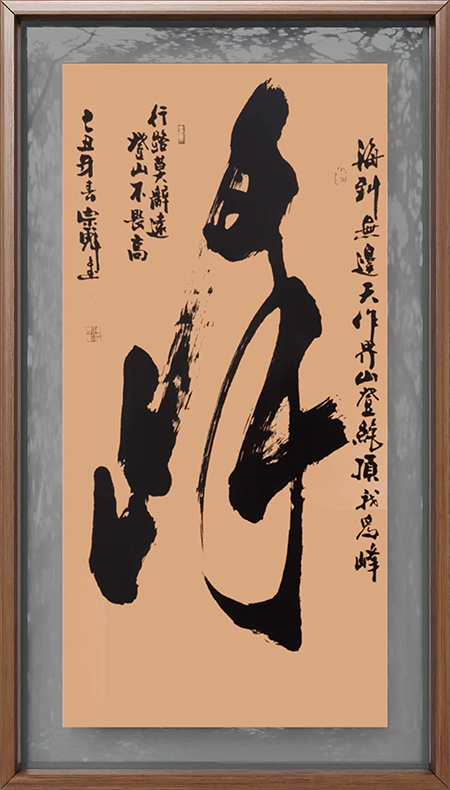 海到無邊天作界山登絕頂我為峰
行路莫辭遠
登山不畏高
己丑年春宗